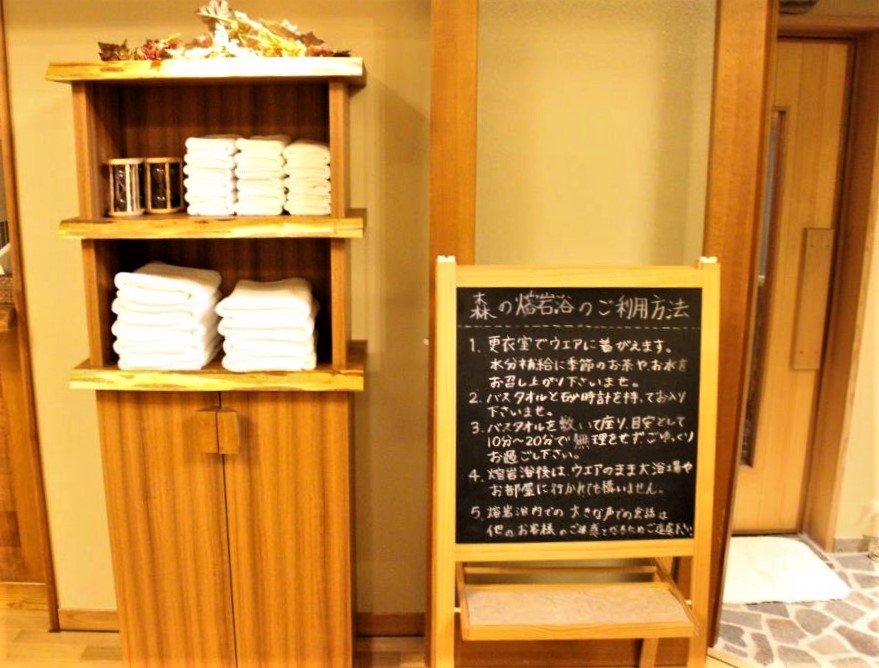 森の熔岩浴のご利用方法
1. 更衣室でウエアに着がえます。
水分補給に季節のお茶や、お水を
お召し上がり下さいませ。
2. バスタオルと砂時計を持ってお入り
下さいませ。
3. バスタオルを敷いて座り、目安として
10分〜20分で無理をせず、ごゆっくり
お過ごし下さい。
4. 熔岩浴後は、ウエアのまま大浴場や
お部屋に行かれても構いません。
5. 熔岩浴内での大きな声での会話は
他のお客様のご迷惑となるためご遠慮下さい